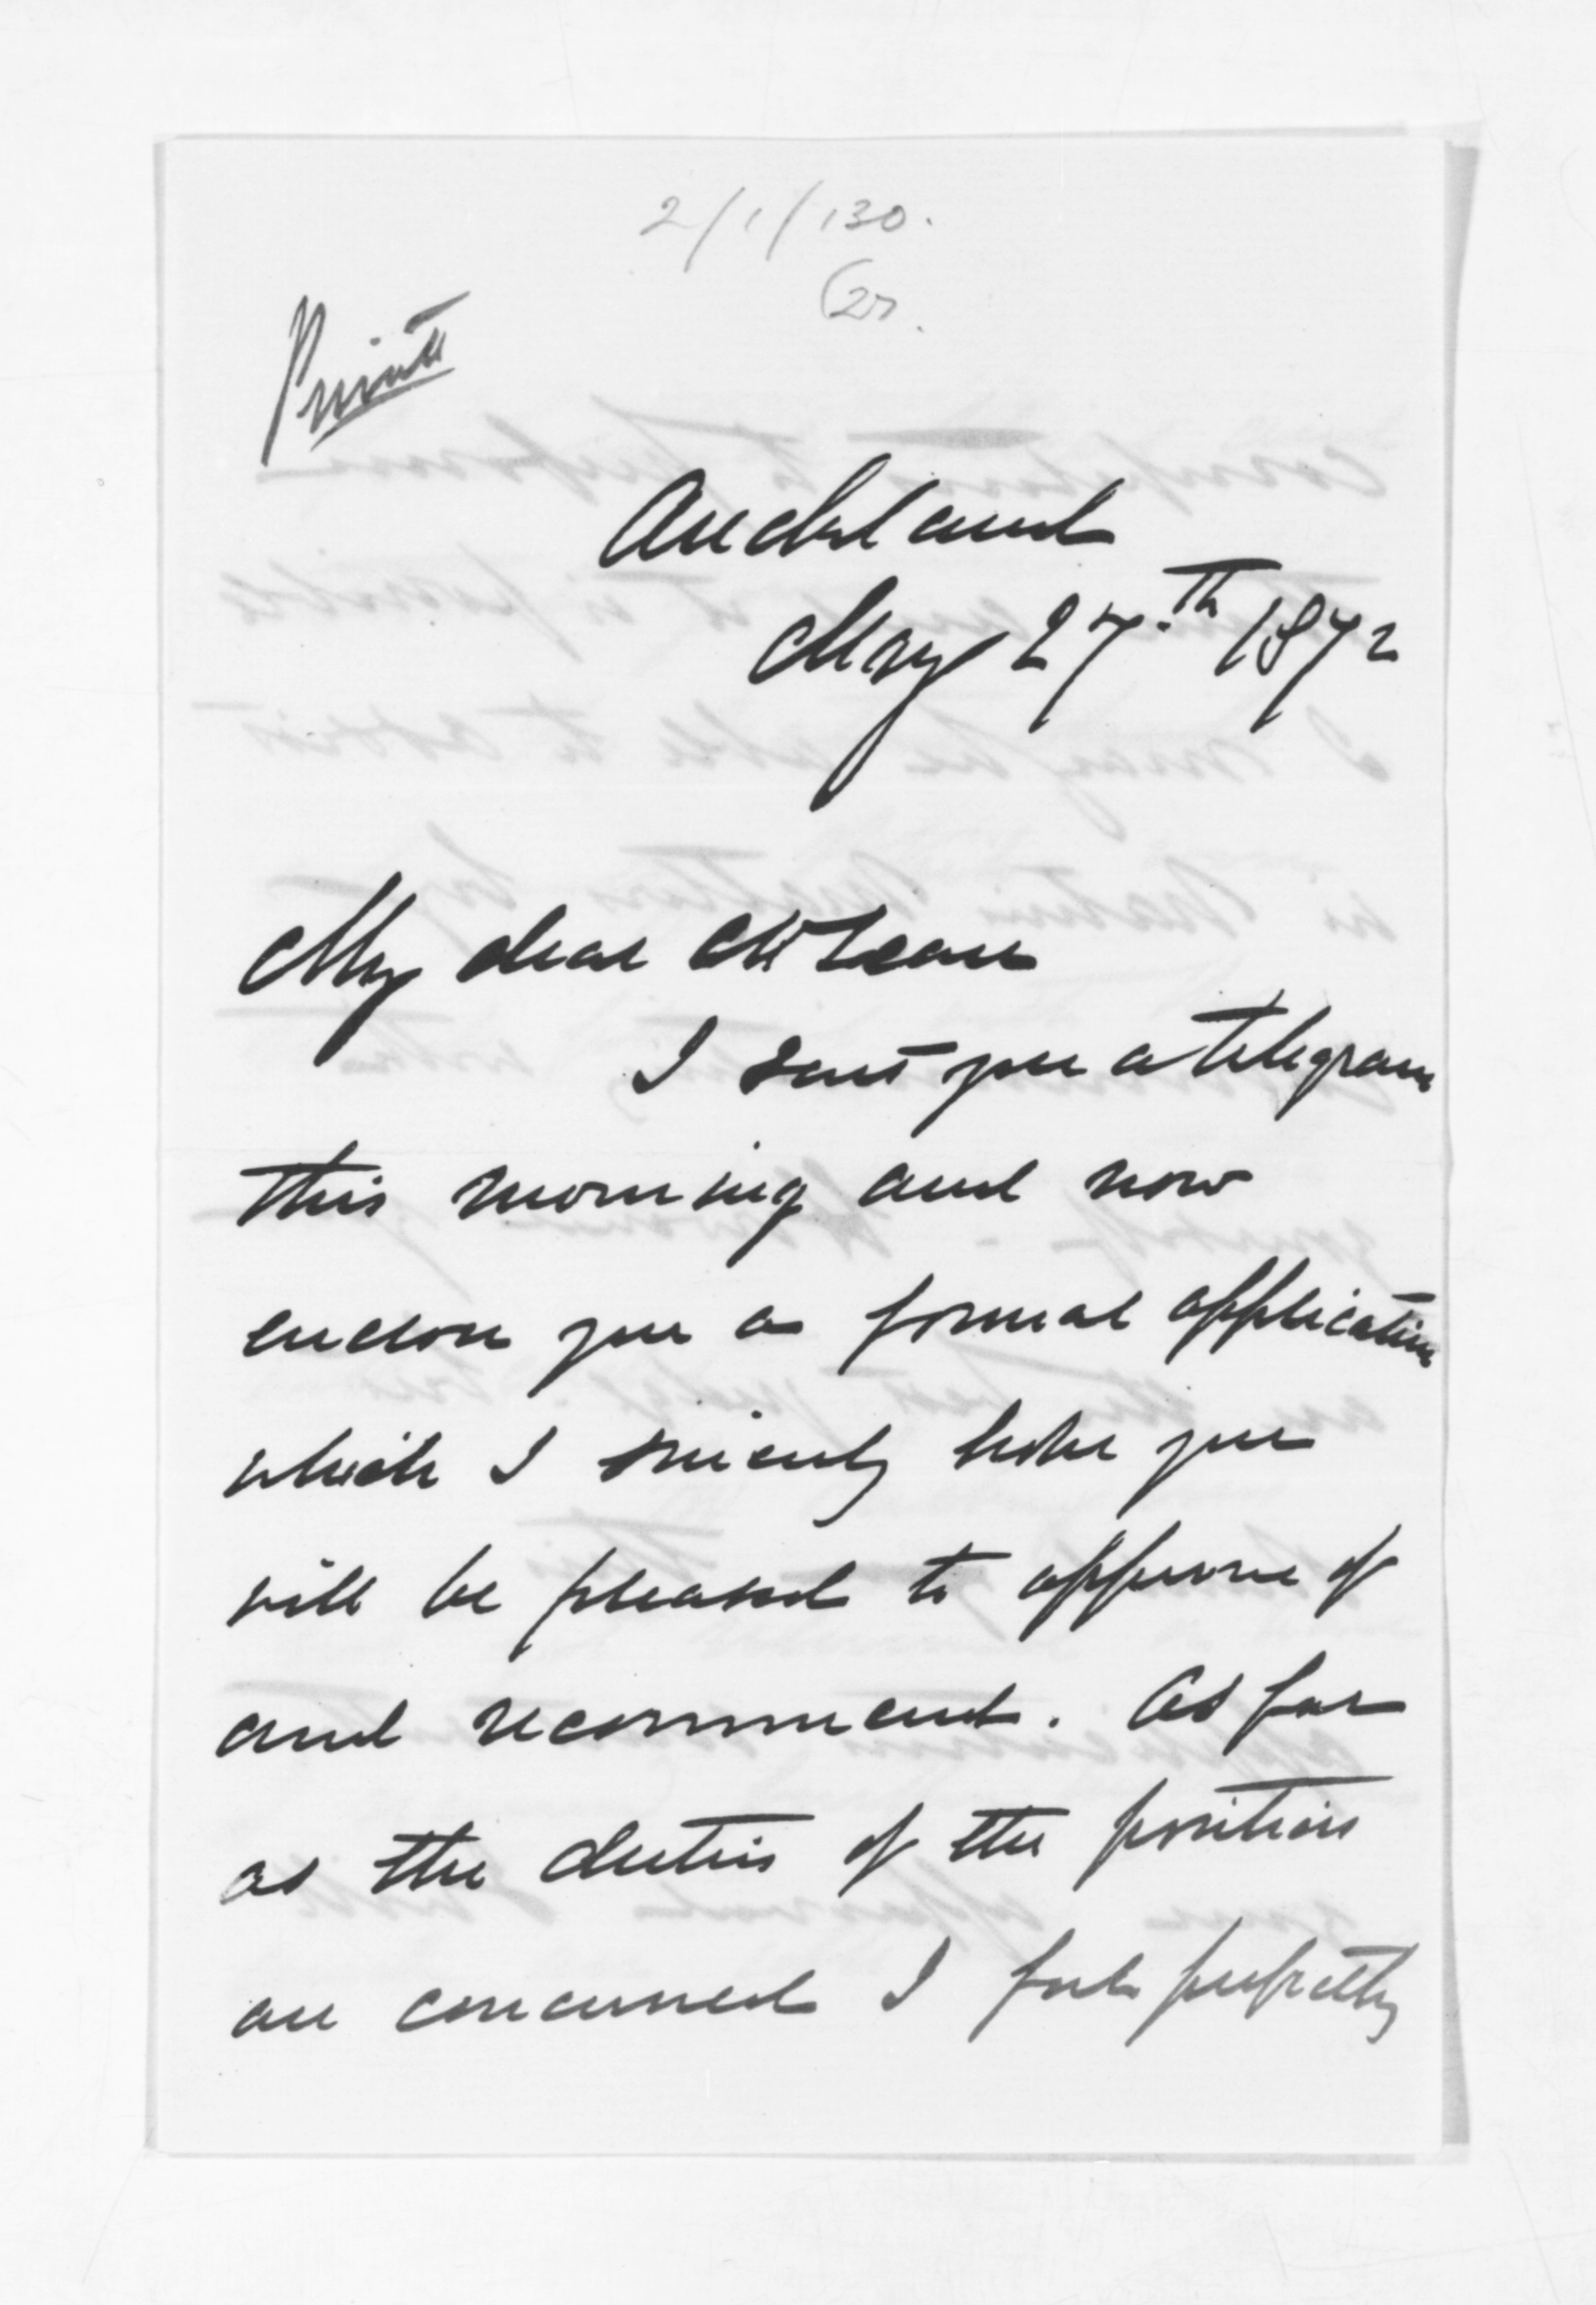 2/1/130.
(27.
Private
Auckland
May 27.th 1872
My dear McLean
I sent you a telegram
this morning and now
enclose you a formal application
which I sincerely hope you
will be pleased to approve of
and recommend. As far
as the duties of the position
are concerned I feel perfectly